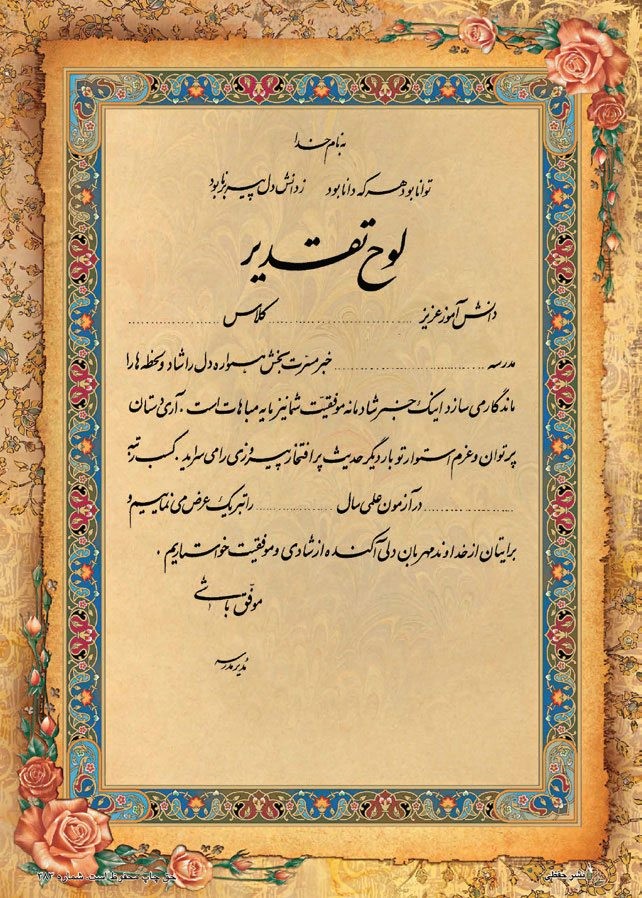 به نام خدا
توانا بود هر که دانا بود ز دانش دل پیر برنا بود
لوح تقدیر
دانش آموز عزیز .................... کلاس ....................
مدرسه .................... خبر مسرت بخش همواره دل را شاد و لحظه ها را
ماندگار می سازد اینک خبر شادمانه موفقیت شما نیز مایه مباهات است . آری دستان
پر توان و عزم استوار تو بار دیگر حدیث پر افتخار پیروزی را می سراید . کسب رتبه
.................... در آزمون علمی سال .................... را تبریک عرض می نماییم و
برایتان از خداوند مهربان دلی آکنده از شادی و موفقیت خواستاریم .
موفق باشی
مدیر مدرسه
نشر حفظی
حق چاپ محفوظ است. شماره ۳۸۳